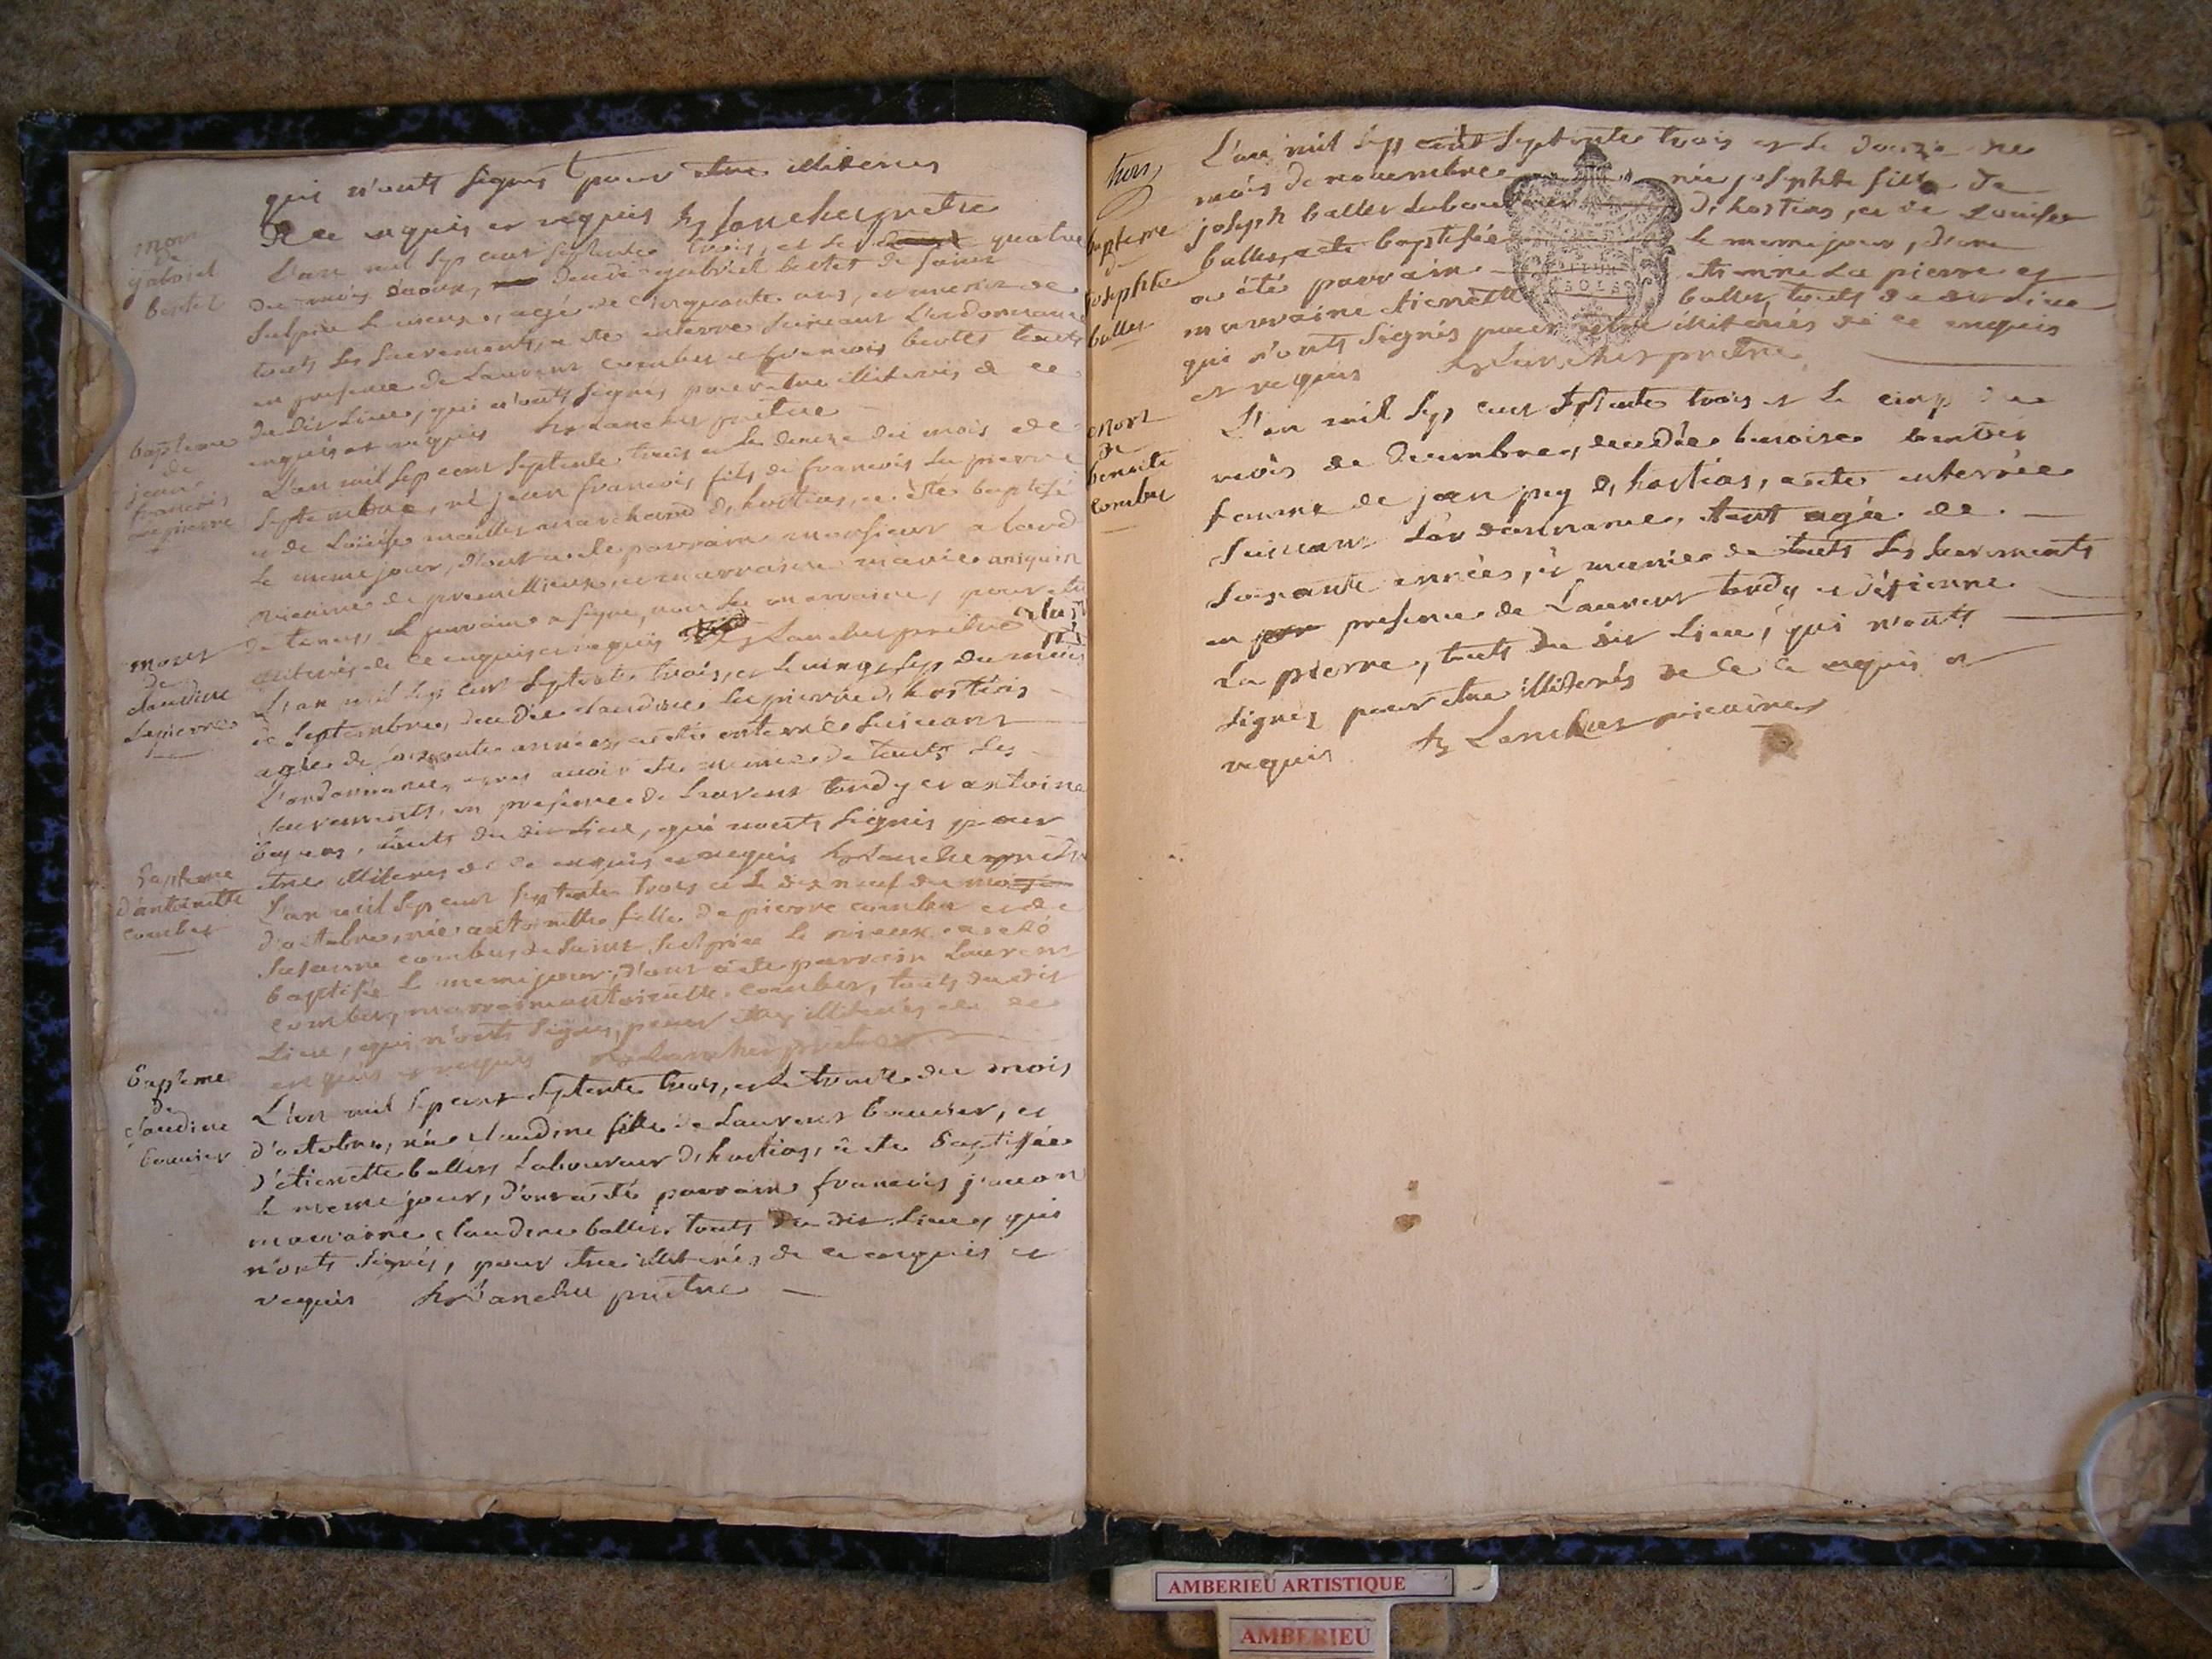 qui n'onts signés pour etre illiterés
de ce enquis et requis hz Lancher pretre
mort
de
gabriel
bertet
L'an mil sep cent septente trois, et le quatre
du mois daoux, decede gabriel bertet de saint
Sulpice le vieux, agé de cinquante ans, et munis de
touts les sacrements, a ete enterré suivant L'ordonnance
en presence de Laurent combet et francois bertet touts
du dit Lieu, qui n'onts signés pour etre illiterés de ce
enquis et requis hz Lancher pretre
bapteme
de
jean
francois
Lapierre
L'an mil sep cent septente trois et le douze du mois de
septembre, né jean francois fils de francois La pierre
et de Loüise mallet marchand d'hostias, a ete baptisé
le meme jour, d'ont a ete parrain monsieur
vicaire de et marraine marie
de le parrain a signé, non la marraine, pour etre
illiterés de ce enquis et requis hz Lancher pretre
mort
de
claudine
Lapierre
L'an mil sep cent septente trois, et le vingt sep du mois
de septembre, decedée claudine La pierre d'hostias
agée de soixante années, a ete enterrée suivant
L'ordonnance, apres avoir ete munie de touts les
sacrements, en presence de Laurent tardy et antoine
touts du dit Lieu, qui n'onts signés pour
etre illiterés de ce enquis et requis hz Lancher pretre
bapteme
d'antoinette
combet
L'an mil sep cent septente trois et le dix neuf du mois
d'octobre, née antoinette fille de pierre combet et de
Susanne combet de saint Sulpice le vieux a eté
baptisée le meme jour, d'ont a ete parrain Laurent
combet, marraine antoinette combet, touts du dit
Lieu, qui n'onts signés, pour etre illiterés de ce
enquis et requis hz Lancher pretre
bapteme
de
claudine
bouvier
L'an mil sep cent septente trois, et le trente du mois
d'octobre, née claudine fille de Laurent bouvier, et
d'étienette ballet Laboureur d'hostias, a ete baptisée
le meme jour, d'ont a eté parrain francois
marraine claudine ballet touts du dit Lieu, qui
n'onts signés, pour etre illiterés de ce enquis et
requis hz Lancher pretre
bapteme
de
josephte
ballet
L'an mil sep cent septente trois et le douze de
mois de novembre née josephte fille de
joseph ballet Laboureur d'hostias, et de Louise
ballet, a ete baptisée le meme jour, d'ont
a été parrain etienne La pierre et
marraine etienette ballet, touts du dit Lieu
qui n'onts signés pour etre illiterés de ce enquis
et requis hz Lancher pretre
mort
de
benoite
combet
L'an mil sep cent septente trois et le cinq du
mois de decembre, decedée benoite combet
femme de jean pey d'hostias, a ete enterrée
suivant L'ordonnance, etant agée de
soixante années, et munie de touts les sacrements
en presence de Laurent tardy et d'étienne
La pierre, touts du dit Lieu, qui n'onts
signés pour etre illiterés de ce ce enquis et
requis hz Lancher vicaire
AMBERIEU ARTISTIQUE
AMBERIEU